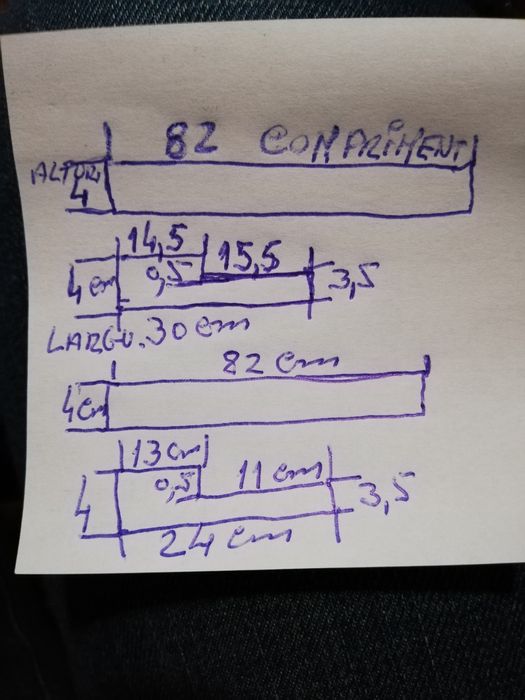 82 COMPRIMENT
ALTURA
4
14,5
4 cm 0,5 15,5 3,5
LARGU. 30 cm
82 cm
4 cm
13 cm
4 0,5 11 cm 3,5
24 cm